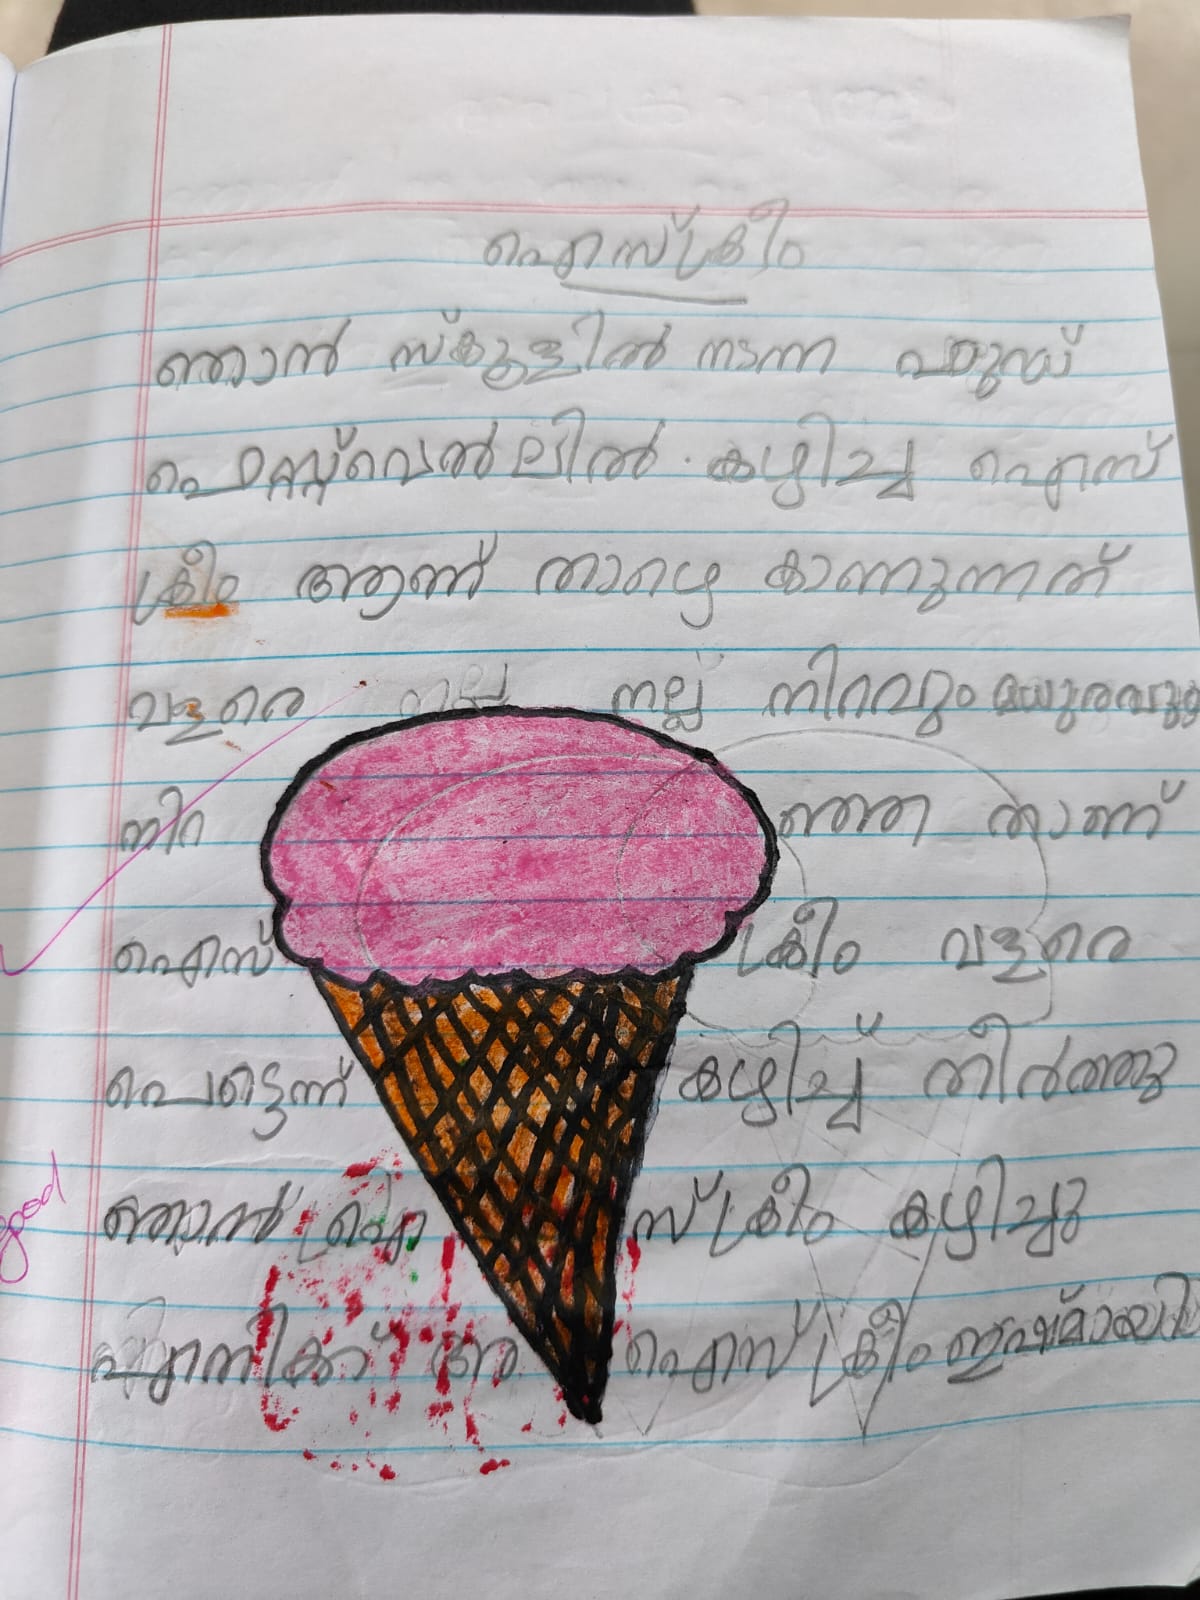 ഐസ്ക്രീം
ഞാൻ സ്കൂളിൽ നടന്ന ഫുഡ്
ഫെസ്റ്റ്വെൽലിൽ. കഴിച്ച ഐസ്
ക്രീം ആണ് താഴെ കാണുന്നത്
വളരെ നല്ല നിറവും മധുരവും
നിറ ഞ്ഞ താണ്
ഐസ് ക്രീം വളരെ
പെട്ടെന്ന് കഴിച്ച് തീർത്തു
ഞാൻ ഐ സ്ക്രീം കഴിച്ചു
എനിക്ക് ആ ഐസ് ക്രീം ഇഷ്ടമായി
good